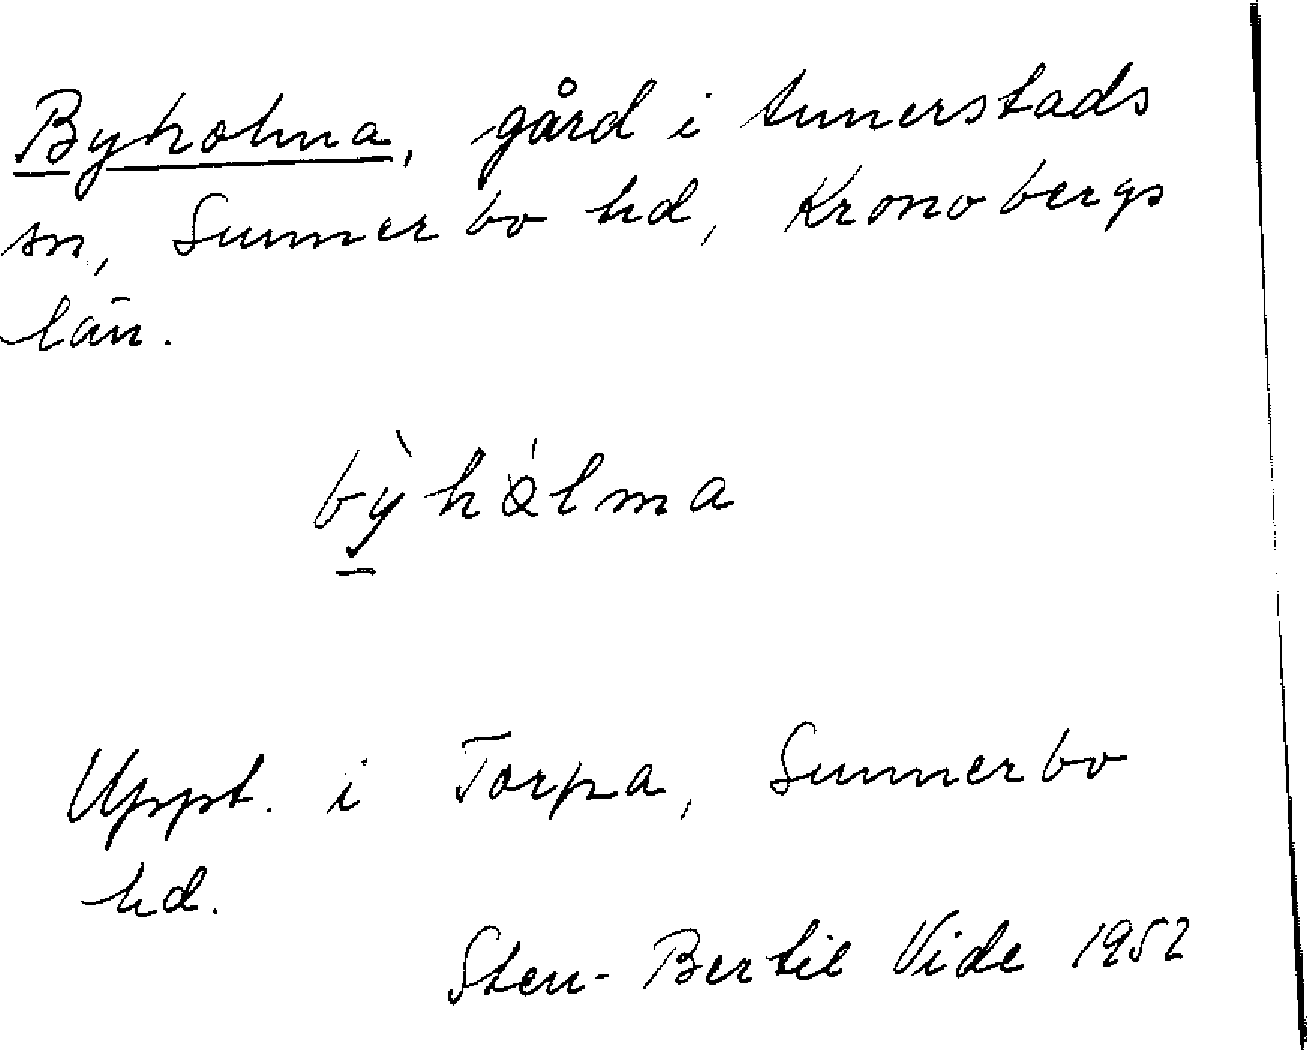 Byholma, gård i Annerstads
sn, Sunnerbo hd, Kronobergs
län.
bỳhålma
Uppt. i Torpa, Sunnerbo
hd.
Sten-Bertil Vide 1952